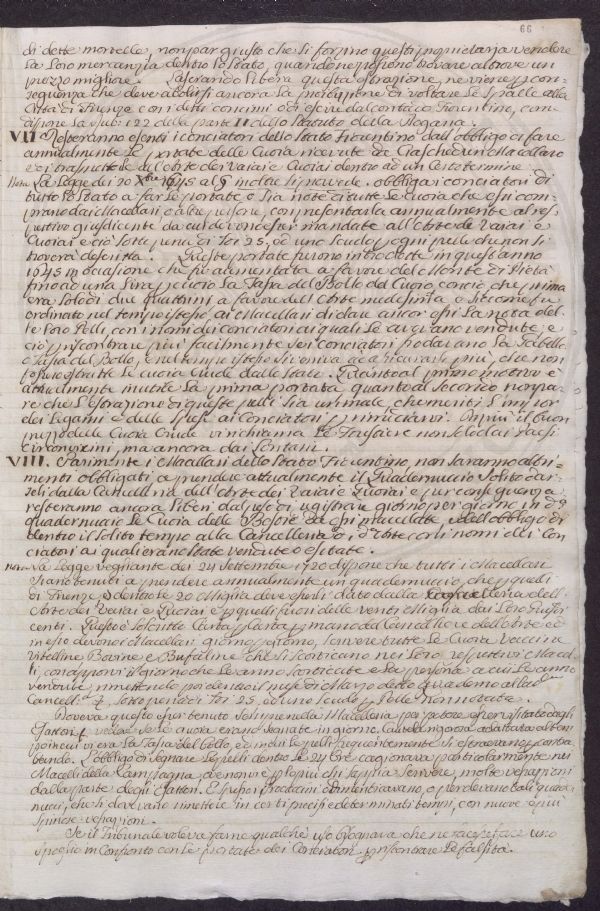 66
di dette mortelle, non par giusto che si forzino questi proprietarj a vendere
la loro mercanzia dentro lo Stato, quando ne possono trovare altrove un
prezzo migliore. Lasciando libera questa estrazione, ne viene per con-
seguenza che deve abolirsi ancora la proibizione di voltare le spalle alla
Città di Firenze con detti concimi o di escire dal contado Fiorentino, come
dispone la rub: 122 della parte II dello Statuto della Dogana.
VII. Resteranno esenti i conciatori dello Stato Fiorentino dall'obbligo di fare
annualmente le portate delle Cuoia ricevute da Ciaschedun Macellaro
e di trasmetterle all'Arte dei Vaiai e Cuoiai dentro ad un Certo termine.
Nota La Legge dei 20 Xbre 1645 al § inoltre si provvede, obbliga i conciatori di
tutto lo Stato a far le portate o sia note di tutte le Cuoia che essi com-
prano dai Macellari e altre persone, con presentarla annualmente al res-
pettivo giusdicente da cui devono esser mandate all'Arte de Vaiai e
Cuoiai e ciò sotto pena di Lire 25, od uno Scudo per ogni pelle che non si
troverà descritta. Queste portate furono introdotte in quest'anno
1645 in occasione che fu aumentata a favore del Monte di Pietà
fino ad una Lira per cuoio la Tassa del Bollo del Cuoio, conciò che prima
era solo di due quattrini a favore dell'Arte medesima e siccome fu
ordinato nel tempo istesso ai Macellari di dare ancor essi la nota del-
le loro Pelli, con i nomi dei conciatori ai quali le avevano vendute; e
ciò per riscontrare più facilmente se i conciatori frodavano la Gabella
o Tassa del Bollo, e nel tempo istesso si veniva ad assicurarsi più che non
fossero estratte le cuoia Crude dallo Stato. Quanto al primo motivo è
attualmente inutile la prima portata quanto al secondo non pa-
re che l'estrazione di queste pelli sia un male, che meriti l'imposizione
dei legami e delle spese ai Conciatori per rinunciarvi. Di più il buon
prezzo delle Cuoia Crude vi richiama le Forestiere non solo dai Paesi
circonvicini, ma ancora dai Lontani.
VIII. Parimente i Macellari dello Stato Fiorentino, non saranno altri-
menti obbligati a prendere attualmente il Quadernuccio solito dar-
seli dalla Cancelleria dell'Arte dei Vaiai e Cuoiai e per conseguenza
resteranno ancora liberi dal peso di registrare giorno per giorno in do
quadernuccio le Cuoia delle Bestie da essi macellate, e dell'obbligo di
dentro il solito tempo alla Cancelleria di do Arte con i nomi dei con-
ciatori ai quali erano state vendute o esitate.
Nota La Legge vegliante dei 24 Settembre 1720 dispone che tutti i Macellari
siano tenuti a prendere annualmente un quadernuccio, che per quelli
di Firenze e dentro le 20 Miglia deve esserli dato dalla Cancelleria dell'
Arte dei Vaiai e Cuoiai e per quelli fuori delle venti Miglia dai loro Giusdi-
centi.
in esso devono i Macellari giorno per giorno, scrivere tutte le Cuoia Vaccine
Vitelline, Bovine e Bufaline che si scorticano nei loro respettivi Macel-
li, con apporvi il giorno che le anno scorticate e la persona a cui le anno
vendute, rimettendo poi dentro il mese di Marzo detto Quaderno alla da
Cancella sotto pena di Lire 25, ed uno Scudo per Pelle non notata.
Doveva questo esser tenuto sempre nella Macelleria per potere esser visitato dagli
Esattori,
poiché vi era la Tassa del bollo, ed inoltre le pelli frequentemente si estraevano per contra-
bando. L'obbligo di segnare le pelli dentro le 24 ore cagionava particolarmente nei
Macelli della Campagna, che non vi è per lo più chi sappia scrivere, molte vessazioni
dalla parte degli Esattori. E spesso i Contadini dimenticavano, o perdevano tali quader-
nucci, che si dovevano rimettere in certi precisi e determinati tempi, con nuove e più
spinose vessazioni.
Se il Tribunale voleva farne qualche uso bisognava che ne facesse fare uno
spoglio in Confronto con le portate dei Conciatori per riscontrare le falsità.